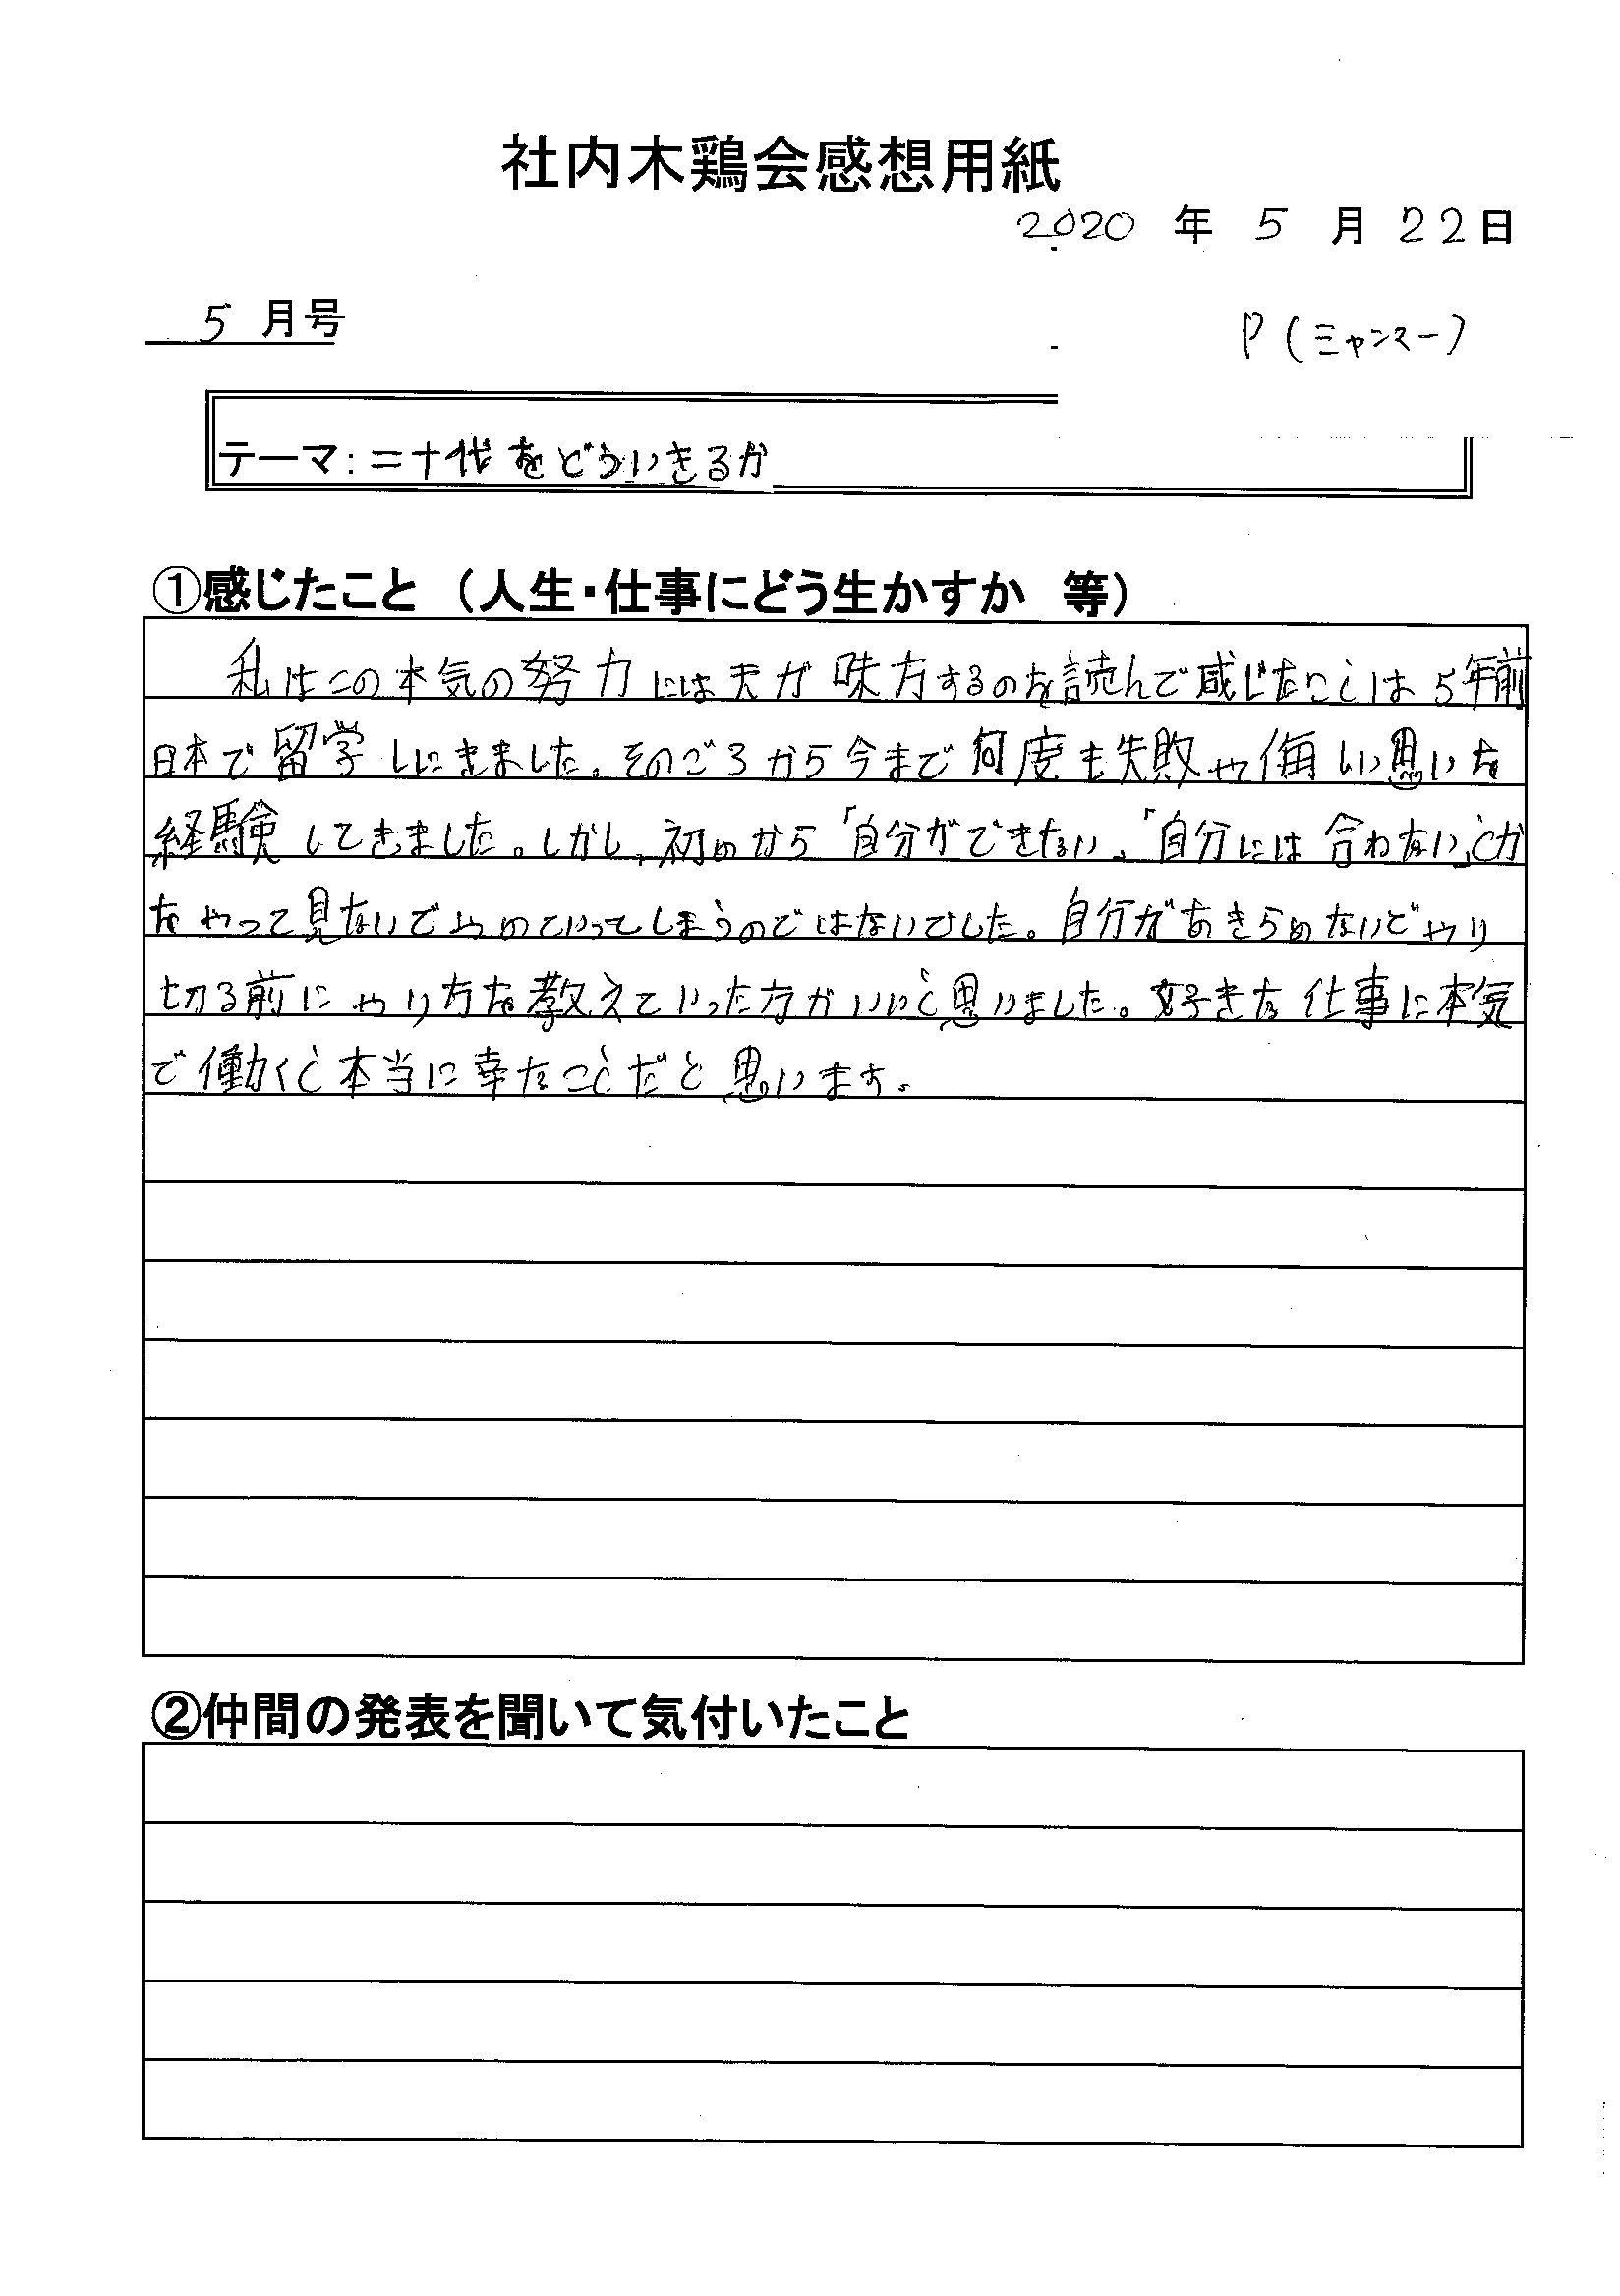 社内木鶏会感想用紙
2020 年 5 月 22日
5 月号
P(ミャンマー)
テーマ:二十代をどういきるか
①感じたこと (人生・仕事にどう生かすか 等)
私はこの本気の努力には天が味方するのを読んで感じたことは5年前
日本で留学しにきました。そのごろから今まで何度も失敗や侮しい思いを
経験してきました。しかし、初めから「自分ができない」、「自分には合わない」とか
をやって見ないでやめていってしまうのではないでした。自分があきらめないでやり
切る前にやり方を教えていった方がいいと思いました。好きな仕事に本気
で働くと本当に幸なことだと思います。
②仲間の発表を聞いて気付いたこと